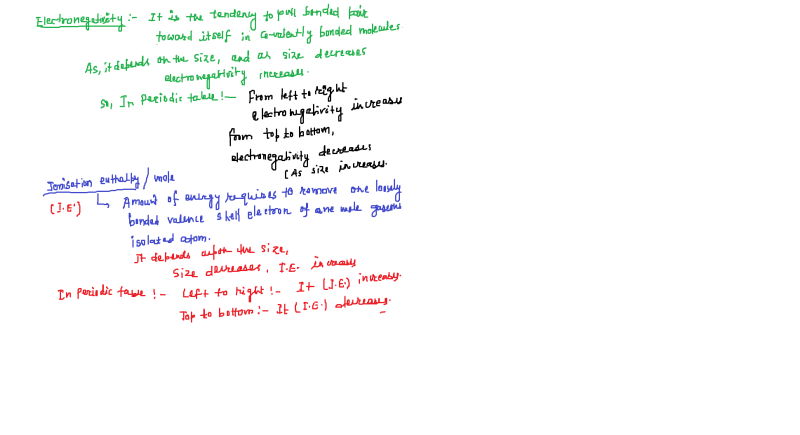 Electronegativity :- It is the tendency to pull bonded pair
toward itself in co-valently bonded molecules
As, it depends on the size, and as size decreases
electronegativity increases.
so, In Periodic table :- From left to right
electronegativity increases
from top to bottom,
electronegativity decreases
(As size increases.
Ionisation enthalpy / mole
(I.E.) ↳ Amount of energy requires to remove one loosely
bonded valence shell electron of one mole gaseous
isolated atom.
It depends upon the size,
Size decreases, I.E. increases
In Periodic table :- Left to right :- It (I.E.) increases.
Top to bottom :- It (I.E.) decreases.